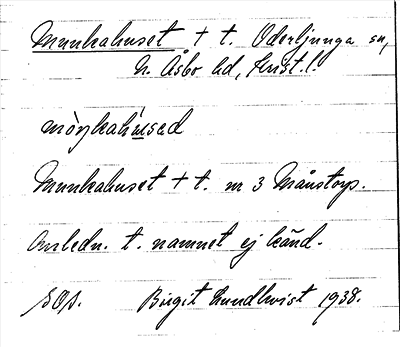 Munkahuset † t. Oderljunga sn,
N. Åsbo hd, Krist. l.
mòŋkahùsəd
Munkahuset † t. nr 3 Månstorp.
Anledn. t. namnet ej känd.
SOA. Birgit Lundkvist 1938.